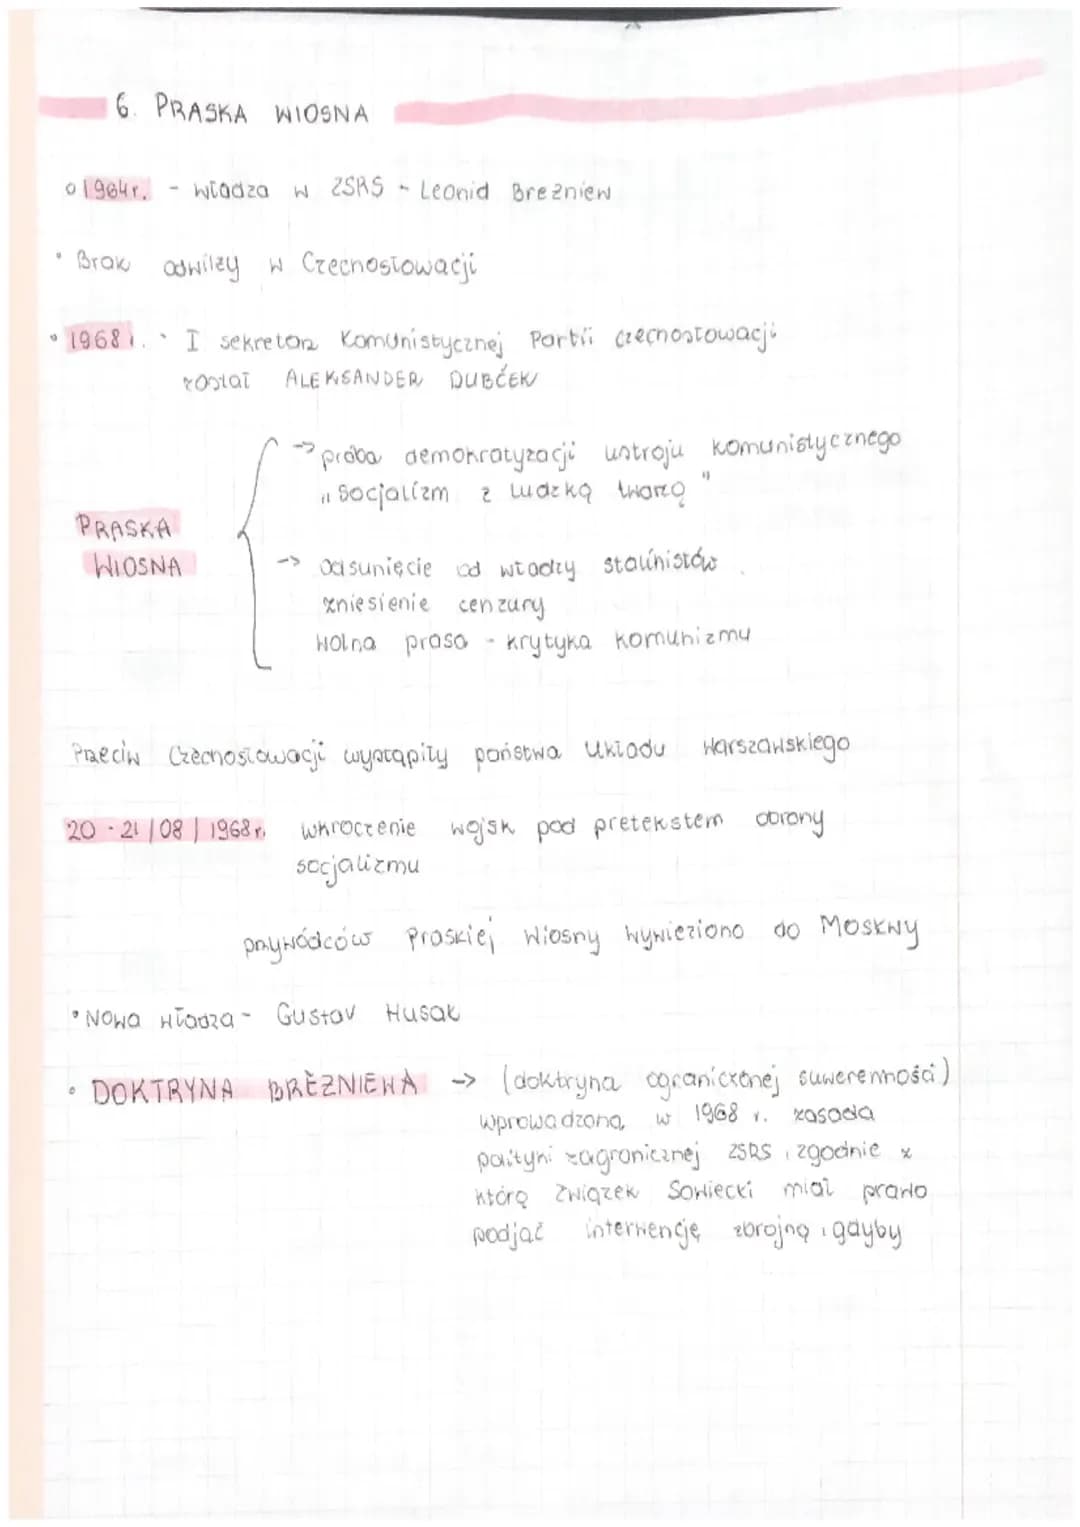 6. PRASKA WIOSNA
1964r. - władza w ZSRS - Leonid Breżniew
Brak odwilży w Czechosłowacji
1968r. I sekretarz Komunistycznej Partii Czechosłowacji
został ALEKSANDER DUBČEK
→ próba demokratyzacji ustroju komunistycznego
„socjalizm z ludzką twarzą”
PRASKA
WIOSNA
→ odsunięcie od władzy stalinistów
zniesienie cenzury
wolna prasa - krytyka komunizmu
Przeciw Czechosłowacji wystąpiły państwa Układu Warszawskiego
20-21/08/1968r. wkroczenie wojsk pod pretekstem obrony
socjalizmu
przywódców Praskiej Wiosny wywieziono do Moskwy
Nowa władza - Gustav Husak
DOKTRYNA BREŻNIEWA → (doktryna ograniczonej suwerenności)
wprowadzona w 1968 r. zasada
polityki zagranicznej ZSRS, zgodnie z
którą Związek Sowiecki miał prawo
podjąć interwencję zbrojną, gdyby